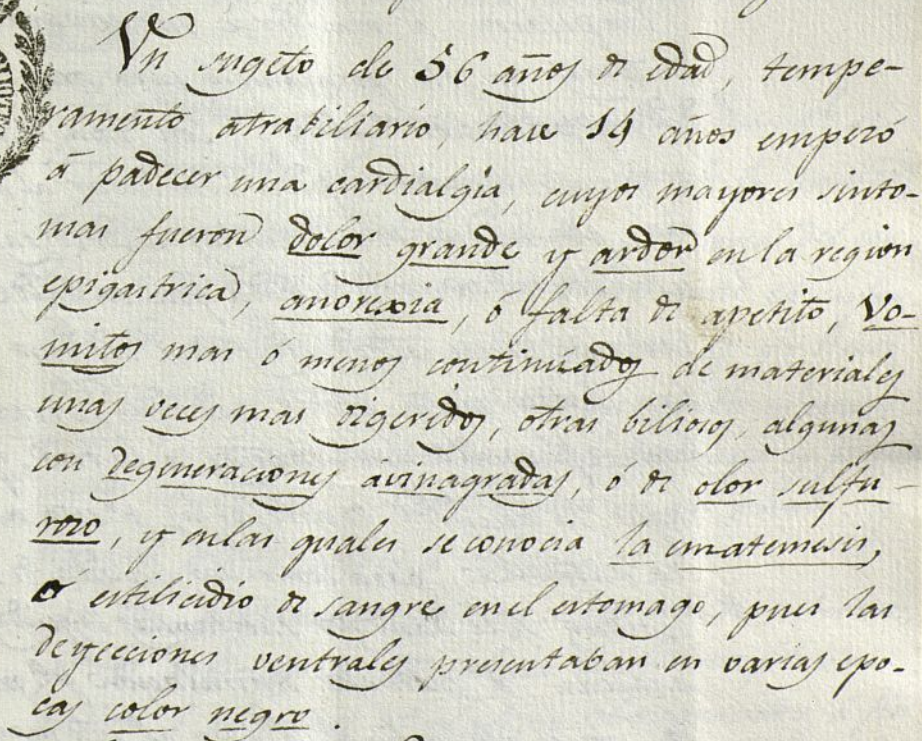 Un sugeto de 56 años de edad, tempe-
ramento atrabiliario, hace 14 años emperó
á padecer una cardialgia, cuyos mayores sinto-
mas fueron dolor grande y ardor en la region
epigastrica, anorexia, ó falta de apetito, vo-
mitos mas ó menos continuados de materiales
unas veces mas digeridos, otras biliosos, algunas
con degeneraciones avinagradas, ó de olor sulfu-
roso, y en las quales se conocia la ematemesis,
ó estilicidio de sangre en el estomago, pues las
deyecciones ventrales presentaban en varias epo-
cas color negro.